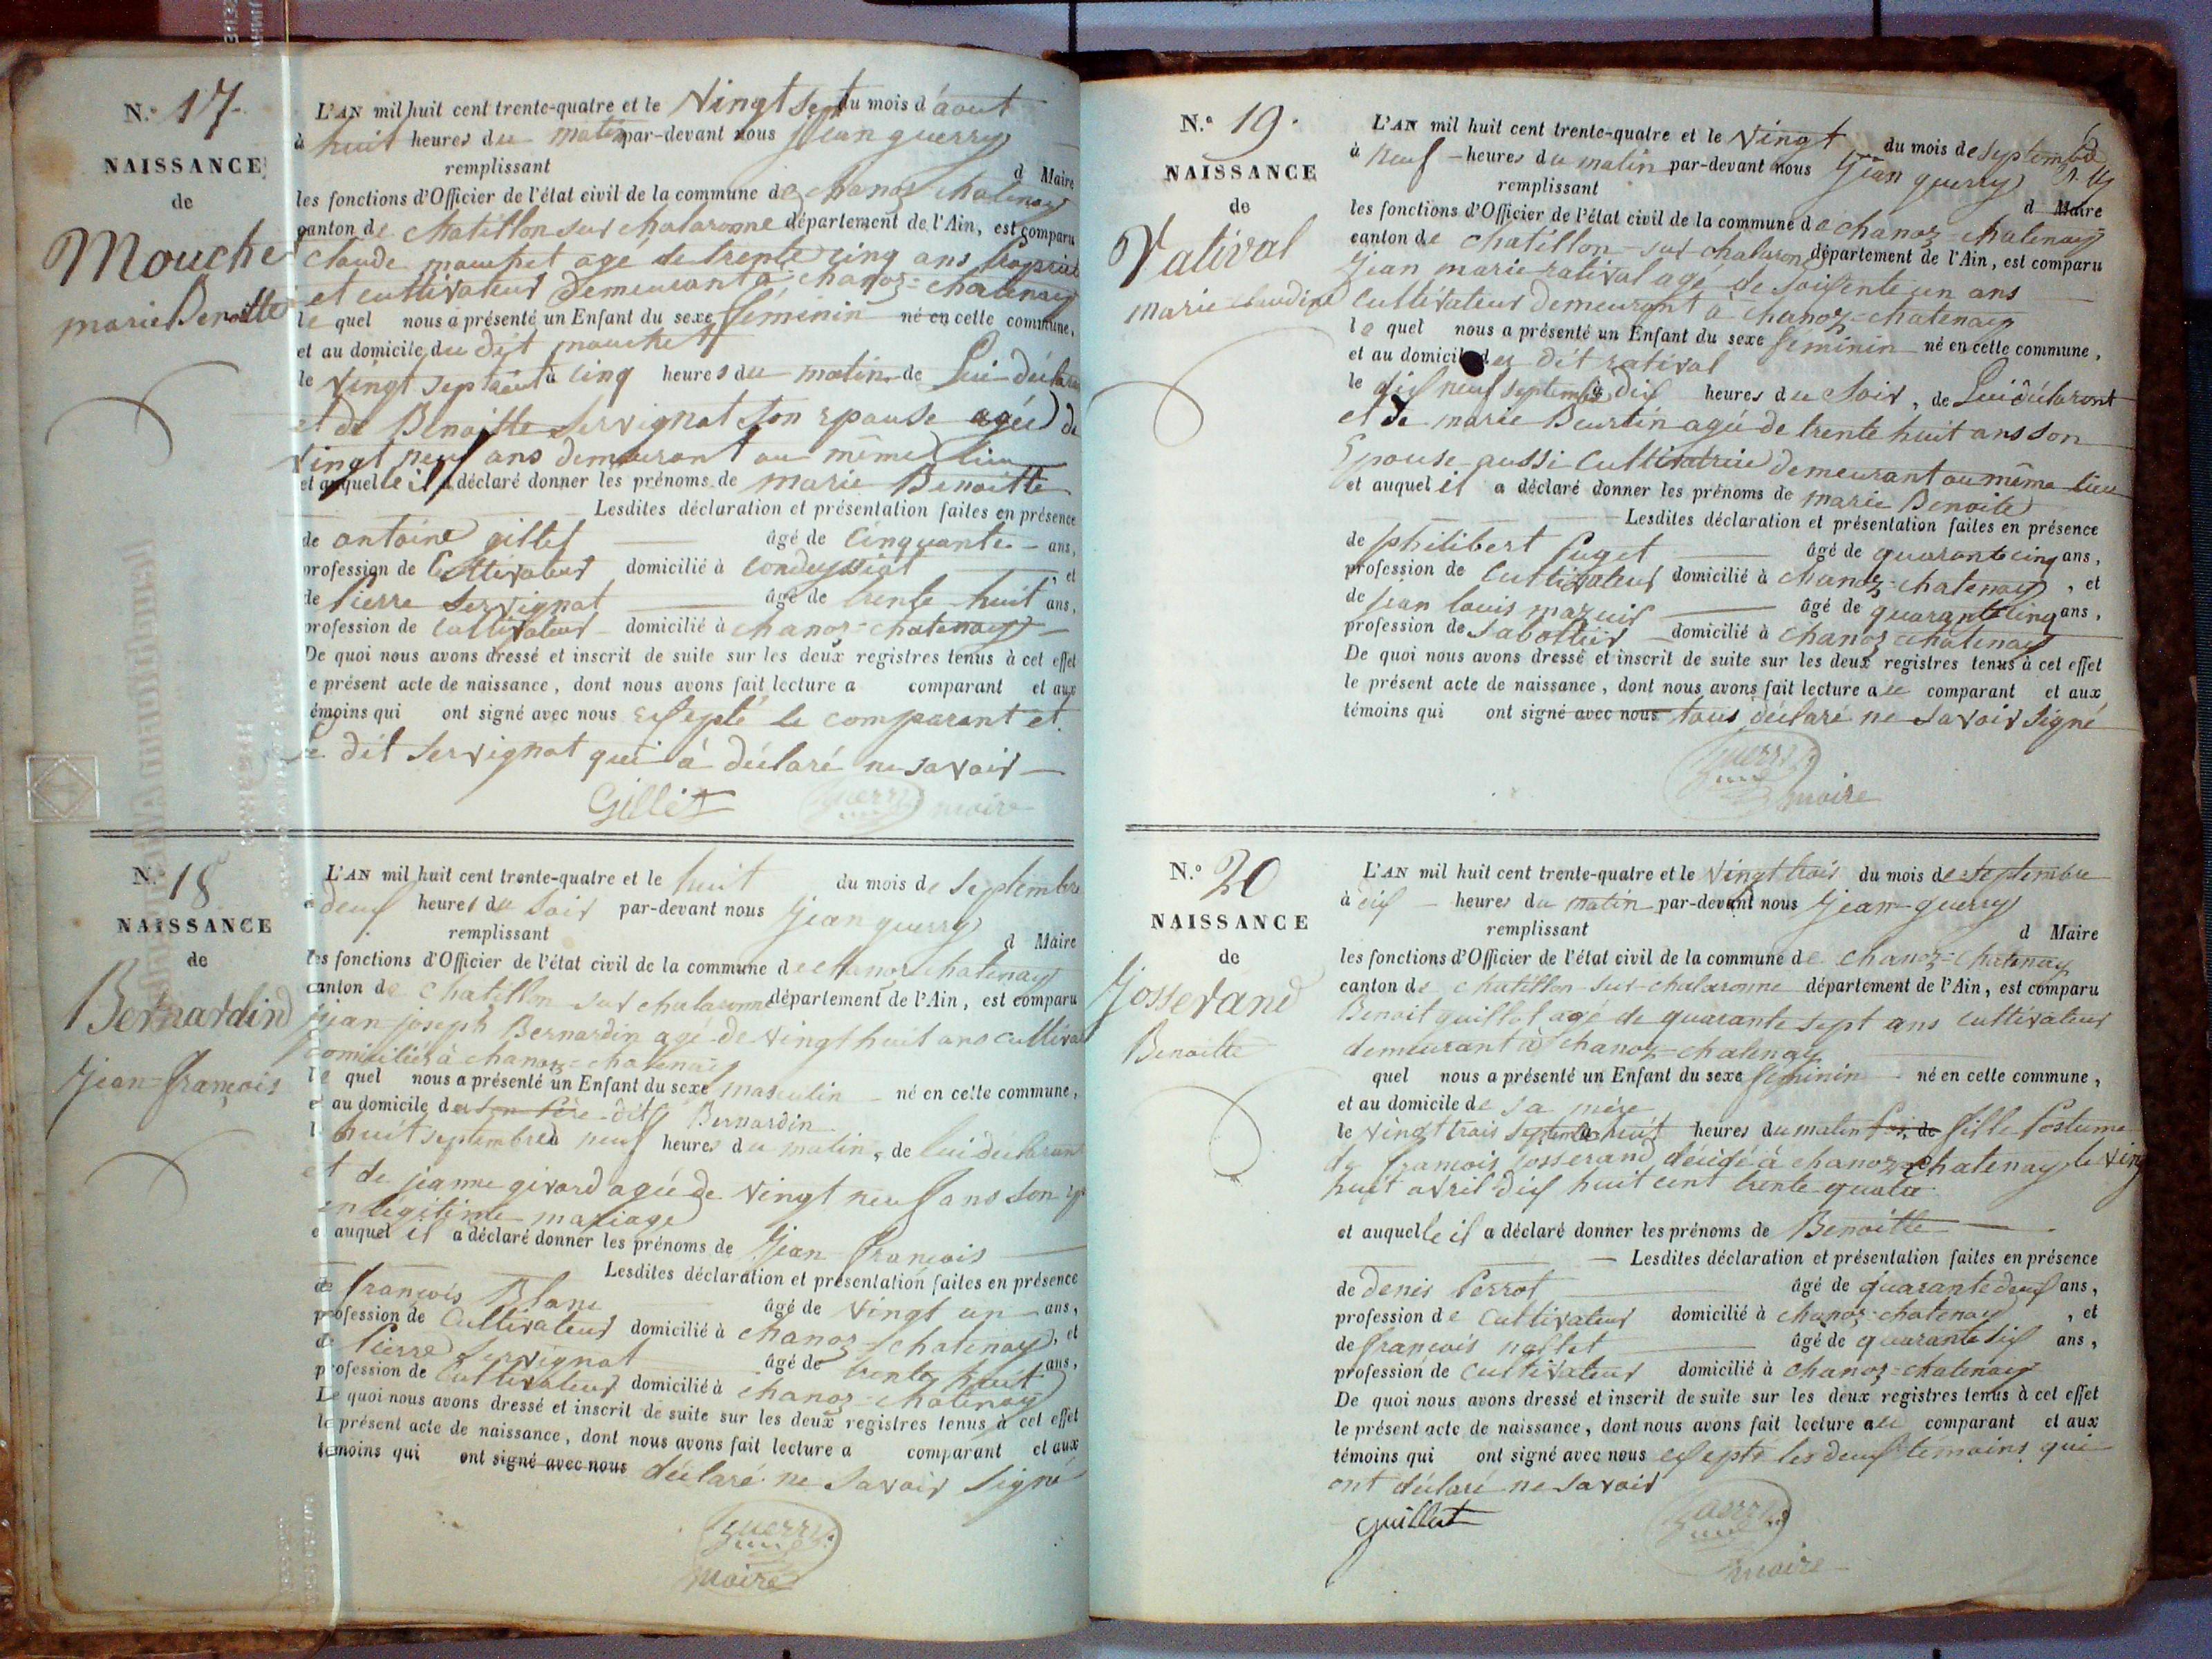 N.° 17.
NAISSANCE
de
Mouchet
marie Benoitte
L'AN mil huit cent trente-quatre et le Vingt sept du mois d'aout
à huit heures du matin par-devant nous Jean guerry
remplissant d Maire
les fonctions d'Officier de l'état civil de la commune de chanoz chatenay
canton de chatillon sur chalaronne département de l'Ain, est comparu
Claude mouchet agé de trente cinq ans
et cultivateur demeurant à chanoz=chatenay
le quel nous a présenté un Enfant du sexe féminin né en cette commune,
et au domicile du dit mouchet
le Vingt sept août à cinq heures du matin de Lui déclarant
et de Benoitte Servignat son epouse agée de
Vingt neuf ans demeurant au même lieu
et auquelle il a déclaré donner les prénoms de marie Benoitte
Lesdites déclaration et présentation faites en présence
de antoine gillet âgé de Cinquante ans,
profession de Cultivateur domicilié à Condeyssiat , et
de Pierre Servignat âgé de trente huit ans,
profession de Cultivateur domicilié à chanoz=chatenay
De quoi nous avons dressé et inscrit de suite sur les deux registres tenus à cet effet
e présent acte de naissance, dont nous avons fait lecture a comparant et aux
émoins qui ont signé avec nous exsepté le comparant et
le dit Servignat qui à déclaré ne savoir
Gillet Guerry maire
N.° 18
NAISSANCE
de
Bernardin
Jean=françois
L'AN mil huit cent trente-quatre et le huit du mois de Septembre
à deux heures du Soir par-devant nous Jean guerry
remplissant d Maire
les fonctions d'Officier de l'état civil de la commune de chanoz chatenay
canton de Chatillon sur chalaronne département de l'Ain, est comparu
jean joseph Bernardin agé de vingt huit ans cultivat
domicilié à chanoz=chatenay
le quel nous a présenté un Enfant du sexe masculin né en cette commune,
et au domicile de son père dit Bernardin
le huit septembre à neuf heures du matin, de lui déclarant
et de jeanne girard agée de Vingt neuf ans son
en légitime mariage
et auquel il a déclaré donner les prénoms de Jean françois
Lesdites déclaration et présentation faites en présence
de françois Blanc âgé de Vingt un ans,
profession de Cultivateur domicilié à chanoz=chatenay, et
de Pierre Servignat âgé de trente huit ans,
profession de Cultivateur domicilié à chanoz=chatenay
De quoi nous avons dressé et inscrit de suite sur les deux registres tenus à cet effet
le présent acte de naissance, dont nous avons fait lecture a comparant et aux
témoins qui ont signé avec nous déclaré ne Savoir signé
Guerry
maire
N.° 19.
NAISSANCE
de
Ratival
marie claudine
L'AN mil huit cent trente-quatre et le Vingt du mois de septembre
à neuf heures du matin par-devant nous Jean guerry
remplissant d Maire
les fonctions d'Officier de l'état civil de la commune de chanoz-chatenay
canton de chatillon-sur chalaronne département de l'Ain, est comparu
Jean marie ratival agé de soisente un ans
cultivateur demeurant à chanoz=chatenay
le quel nous a présenté un Enfant du sexe féminin né en cette commune,
et au domicile du dit ratival
le dix neuf septembre à dix heures du Soir, de Lui déclarant
et de marie Beurtin agée de trente huit ans son
Epouse aussi cultivatrice demeurant au même lieu
et auquel il a déclaré donner les prénoms de marie Benoite
Lesdites déclaration et présentation faites en présence
de philibert Puget âgé de quarante cinq ans,
profession de Cultivateur domicilié à chanoz-chatenay, et
de jean louis mazuir âgé de quarante cinq ans,
profession de Sabottier domicilié à chanoz-chatenay
De quoi nous avons dressé et inscrit de suite sur les deux registres tenus à cet effet
le présent acte de naissance, dont nous avons fait lecture au comparant et aux
témoins qui ont signé avec nous tous déclaré ne savoir signé
Guerry
maire
N.° 20
NAISSANCE
de
Josserand
Benoitte
L'AN mil huit cent trente-quatre et le Vingt trois du mois de septembre
à dix heures du matin par-devant nous Jean guerry
remplissant d Maire
les fonctions d'Officier de l'état civil de la commune de chanoz=chatenay
canton de chatillon-sur-chalaronne département de l'Ain, est comparu
Benoit guillot agé de quarante sept ans cultivateur
demeurant à chanoz-chatenay
quel nous a présenté un Enfant du sexe féminin né en cette commune,
et au domicile de sa mère
le vingt trois septembre à huit heures du matin de fille Postume
de françois Josserand décédé à chanoz=Chatenay le Ving
huit avril dix huit cent trente quatre
et auquelle il a déclaré donner les prénoms de Benoitte
Lesdites déclaration et présentation faites en présence
de denis Perrot âgé de quarante deux ans,
profession de cultivateur domicilié à chanoz-chatenay, et
de françois nallet âgé de quarante six ans,
profession de cultivateur domicilié à chanoz-chatenay
De quoi nous avons dressé et inscrit de suite sur les deux registres tenus à cet effet
le présent acte de naissance, dont nous avons fait lecture au comparant et aux
témoins qui ont signé avec nous exsepté les deux temoins qui
ont déclaré ne savoir
Guillot Guerry
maire